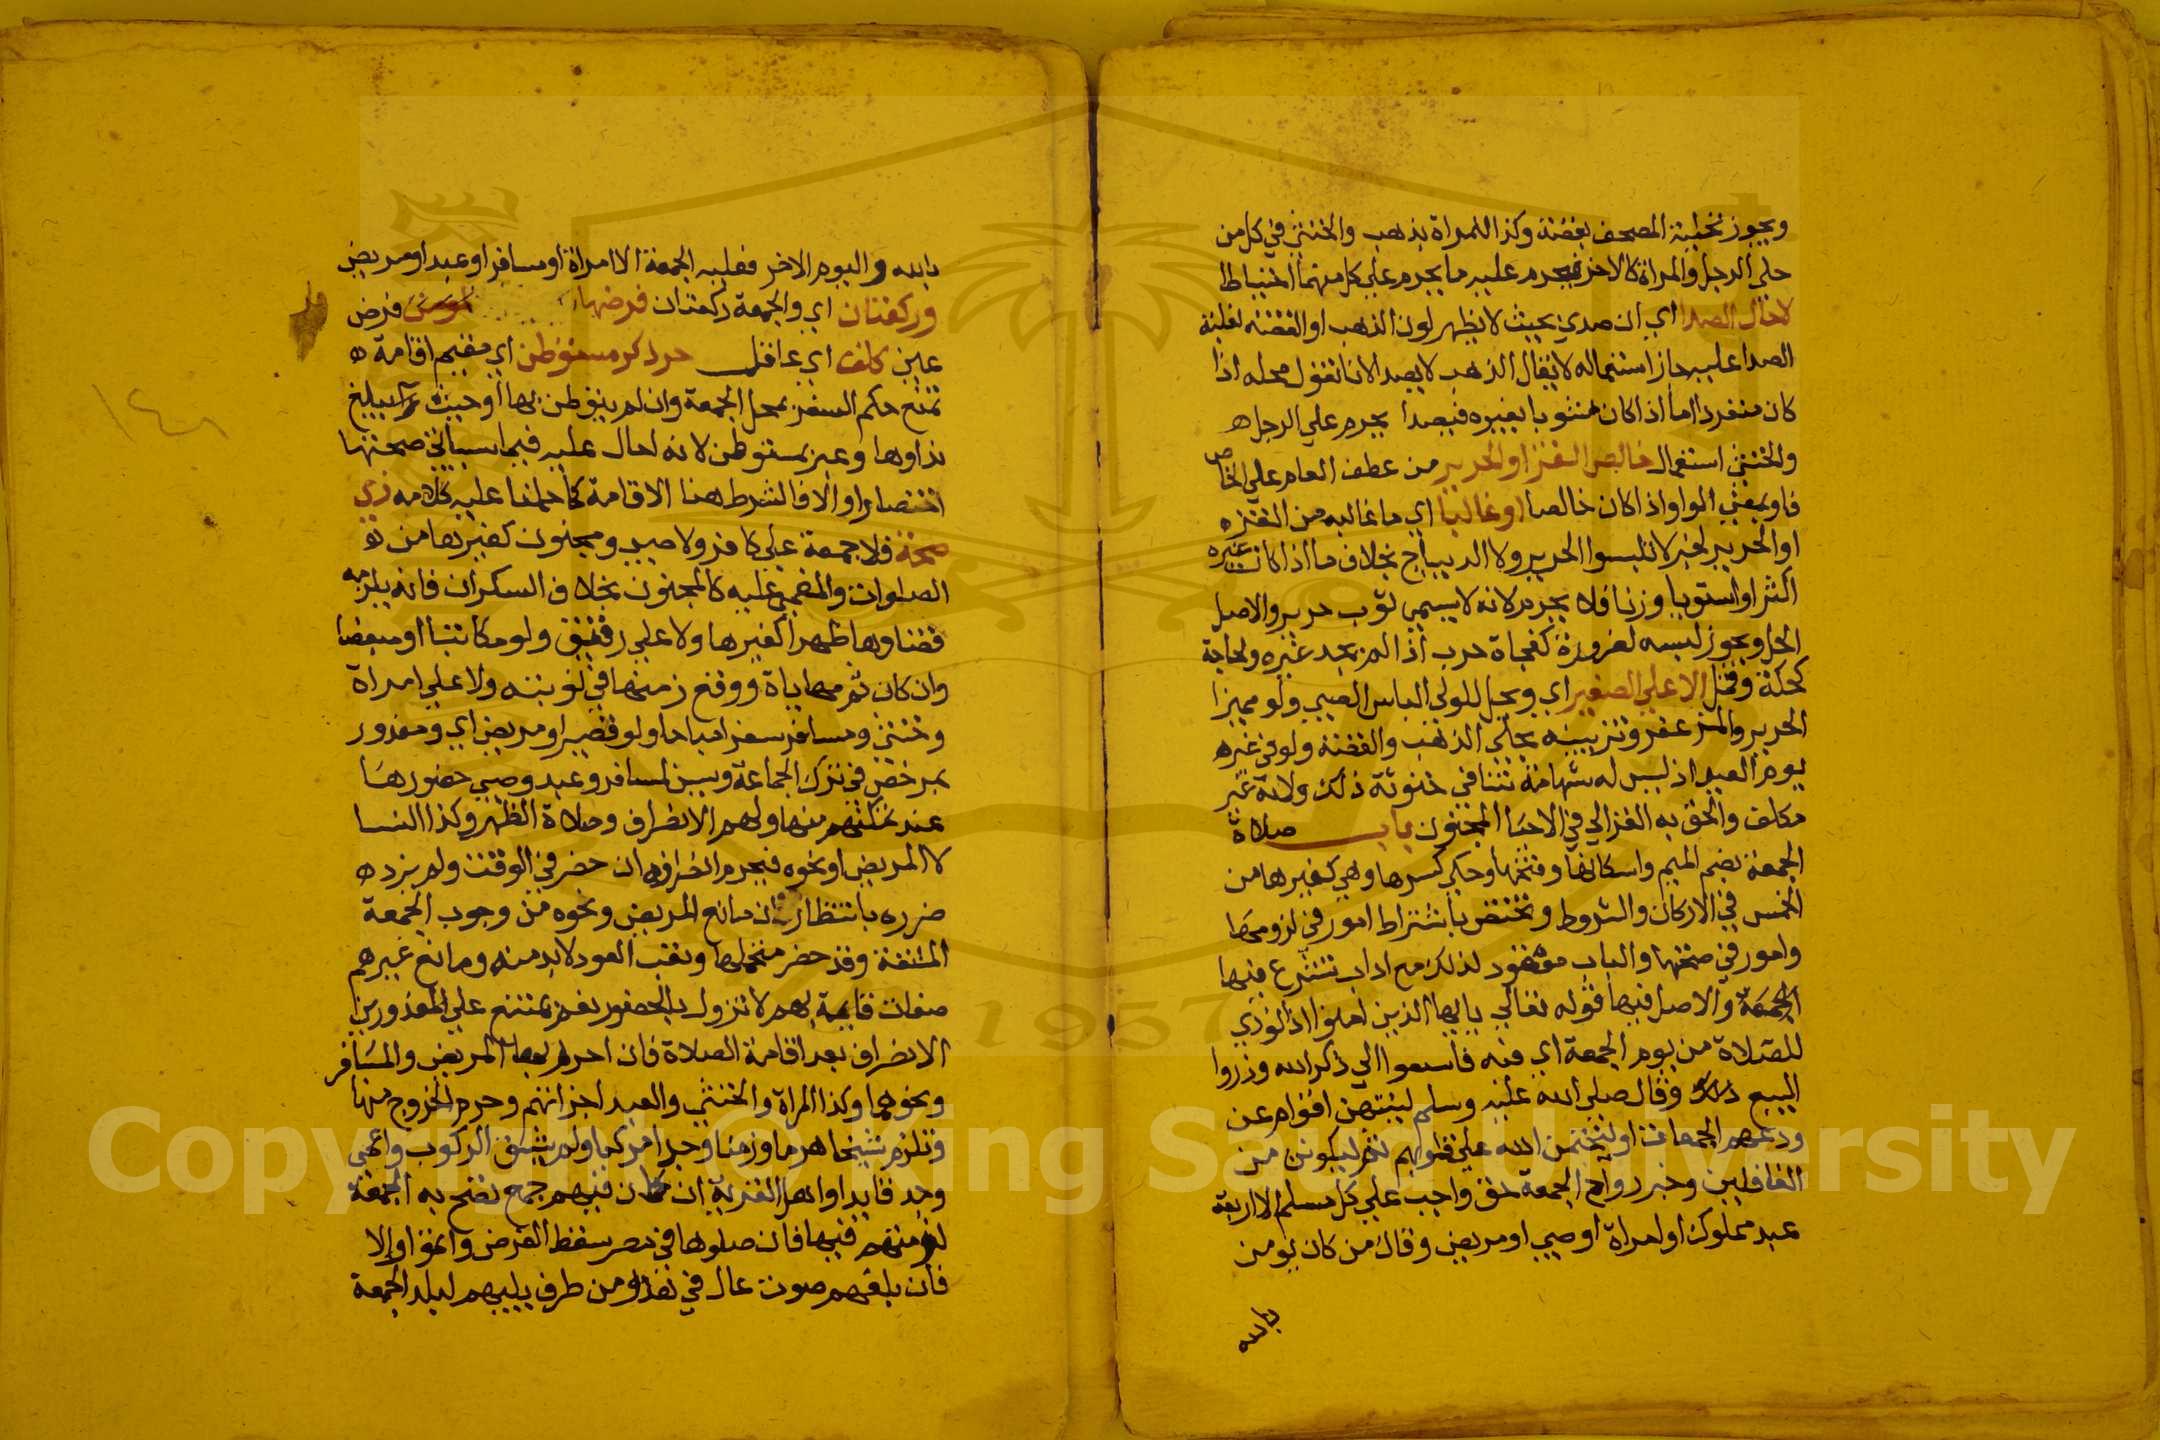 ويجوز تحلية المصحف بفضة وكذا للمراة بذهب والخنثي في كل من
حلي الرجل والمراة كالاخر فيحرم عليه ما يحرم علي كل منهما احتياطا
لا حال الصدا اي ان صدي بحيث لا يظهر لون الذهب او الفضة لغلبة
الصدا عليه جاز استعماله لا يقال الذهب لا يصدا لانا نقول محله اذا
كان منفردا اما اذا كان مشوبا بغيره فيصدا يحرم علي الرجل ه
والخنثي استعمال خالص القز او الحرير من عطف العام علي الخاص
فاو بمعني الواو اذا كان خالصا او غالبا اي ما غالبه من القز ه
او الحرير لخبر لا تلبسوا الحرير ولا الديباج بخلاف ما اذا كان غيره
اكثر او استويا وزنا فلا يحرم لانه لا يسمي ثوب حرير والاصل
الحل ويجوز لبسه لضرورة كفجاة حرب اذا لم يجد غيره ولحاجة
كحكة وقمل الا علي الصغير اي ويحل للولي الباس الصبي ولو مميزا
الحرير والمزعفر وتزيينه بحلي الذهب والفضة ولو في غير ه
يوم العيد اذ ليس له شهامة تنافي خنوثة ذلك ولانه غير
مكلف والحق به الغزالي في الاحيا المجنون باب صلاة
الجمعة بضم الميم واسكانها وفتحها وحكي كسرها وهي كغيرها من
الخمس في الاركان والشروط وتختص باشتراط امور في لزومها
وامور في صحتها والباب معقود لذلك مع اداب تشرع فيها
الجمعة والاصل فيها قوله تعالي يايها الذين امنوا اذا نودي
للصلاة من يوم الجمعة اي فيه فاسعوا الي ذكر الله وذروا
البيع وقال صلي الله عليه وسلم لينتهين اقوام عن
ودعهم الجمعات او ليختمن الله علي قلوبهم ثم ليكونن من
الغافلين وخبر رواح الجمعة حق واجب علي كل مسلم الا اربعة
عبد مملوك او امراة او صبي او مريض وقال من كان يومن
بالله
بالله واليوم الاخر فعليه الجمعة الا امراة او مسافر او عبد او مريض
وركعتان اي والجمعة ركعتان فرضها فرض
عين كلف اي عاقل حر ذكر مستوطن اي مقيم اقامة ه
تمنع حكم السفر بمحل الجمعة وان لم يتوطن بها او حيث يبلغ
نداوها وعبر بمستوطن لانه احال عليه فيما سياتي صحتها
اختصارا والا فالشرط هنا الاقامة كما حملنا عليه كلامه ذي
صحة فلا جمعة علي كافر ولا صبي ومجنون كغيرها من
الصلوات والمغمي عليه كالمجنون بخلاف السكران فانه يلزمه
قضاوها ظهرا كغيرها ولا علي رقيق ولو مكاتبا او مبعضا
وان كان ثم مهاياة ووقع زمنها في نوبته ولا علي امراة
وخنثي ومسافر سفرا مباحا ولو قصيرا ومريض اي ومعذور
بمرخص في ترك الجماعة ويسن لمسافر وعبد وصبي حضورها
عند تمكنهم منها ولهم الانصراف وصلاة الظهر وكذا النسا
لا المريض او نحوه فيحرم انصرافه ان حضر في الوقت ولم يزد ه
ضرره بانتظار فان مانع المريض ونحوه من وجوب الجمعة
المشقة وقد حضر متحملا وتعب العود لا بد منه ومانع غيرهم
صفات قايمة بهم لا تزول بالحضور نعم يمتنع علي المعذورين
الانصراف بعد اقامة الصلاة فان احرم بها المريض والمسافر
ونحوهما وكذا المراة والخنثي والعبد اجزاتهم وحرم الخروج منها
وتلزم شيخا هرما وزمنا وجدا مركبا ولم يشق الركوب واعمي
وجد قايدا واهل القرية ان كان فيهم جمع تصح به الجمعة
لزمتهم فيها فان صلوها في مصر سقط الفرض واثموا والا
فان بلغهم صوت عال في هدو من طرف يليهم لبلد الجمعة
١٤٨
Copyright © King Saud University
1957